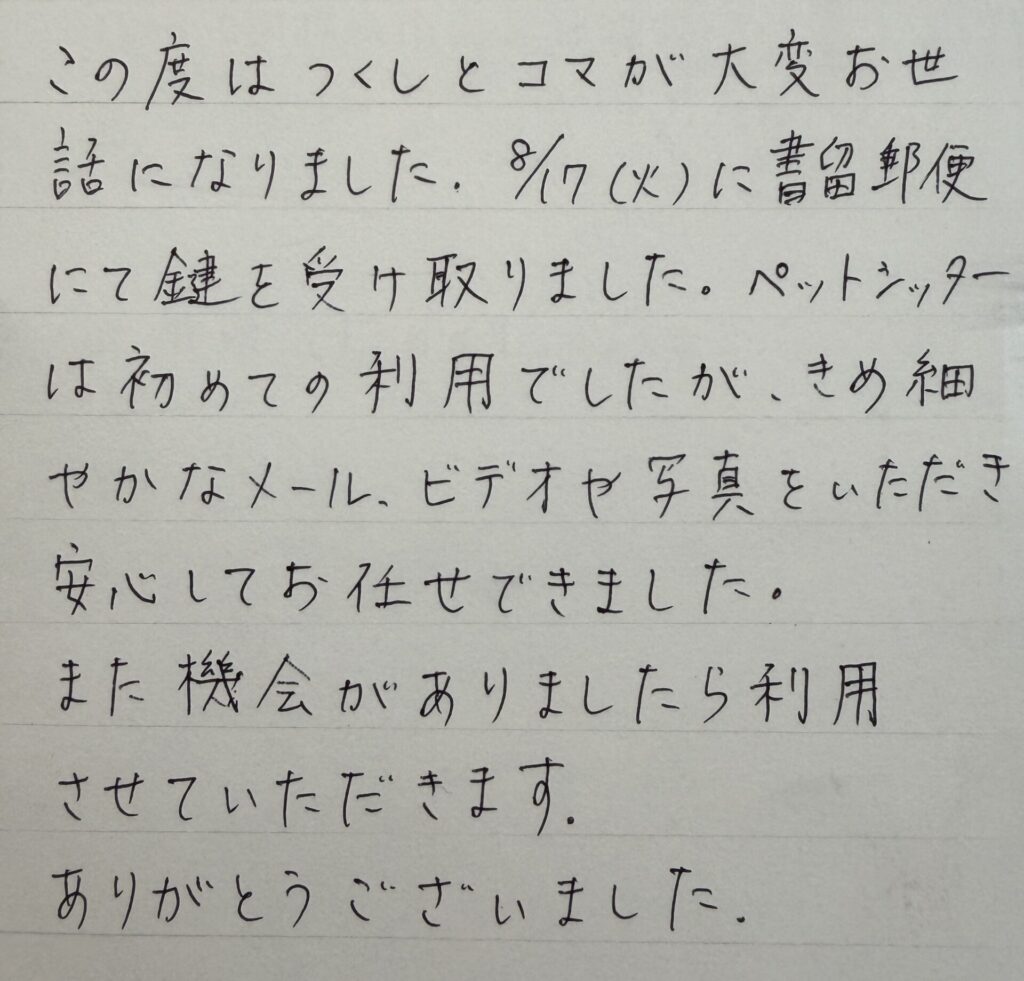 この度はつくしとコマが大変お世
話になりました. 8/17(火)に書留郵便
にて鍵を受け取りました。ペットシッター
は初めての利用でしたが、きめ細
やかなメール、ビデオや写真をいただき
安心してお任せできました。
また機会がありましたら利用
させていただきます.
ありがとうございました.